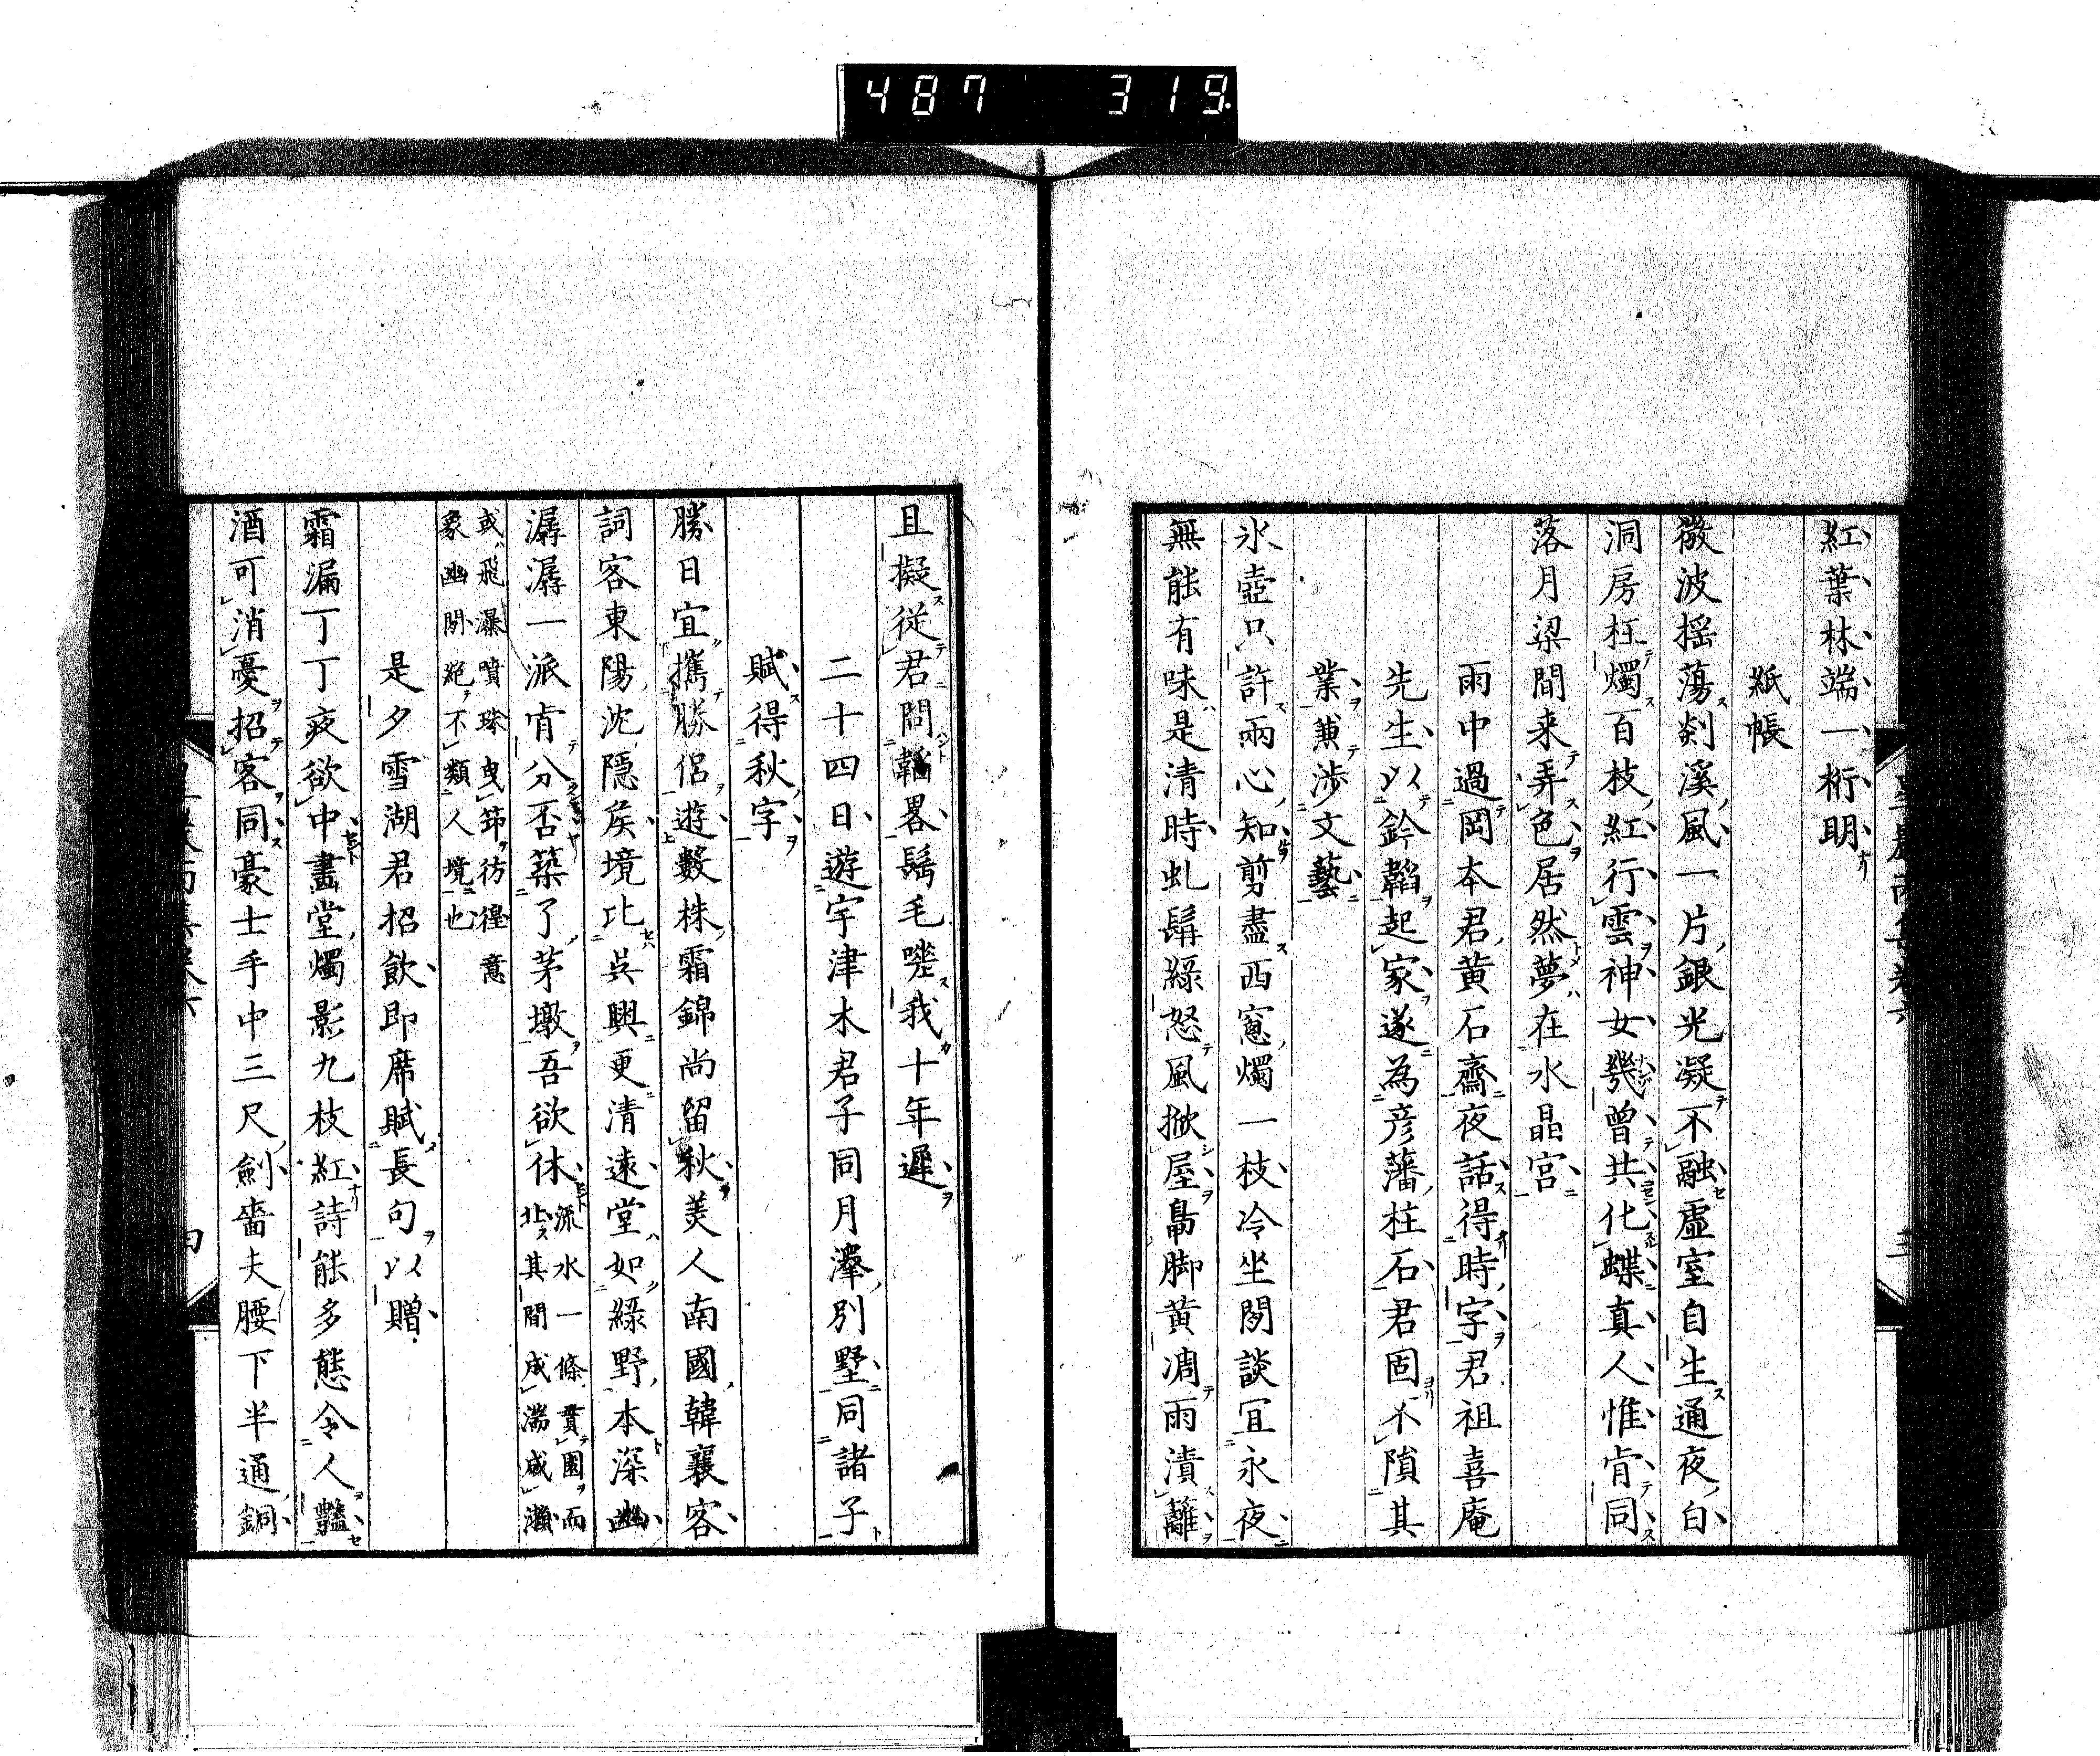 487 319
紅葉林端一桁明
紙帳
微波揺蕩剡溪風一片銀光凝不融虛室自生通夜白
洞房枉燭百枝紅行雲神女幾曾共化蝶真人惟肯同
落月梁間来弄色居然夢在水晶宮
雨中過岡本君黄石齋夜話得時字君祖喜庵
先生以鈐韜起家遂為彦藩柱石君固不隕其
業兼渉文藝
氷壺只許兩心知剪盡西窓燭一枝冷坐閑談宜永夜
無能有味是清時虬髯緑怒風掀屋鳧脚黄凋雨漬籬
且擬従君問韜畧髩毛嗟我十年遲
二十四日遊宇津木君子同月澤別墅同諸子
賦得秋字
勝日宜攜勝侶遊數株霜錦尚留秋美人南國韓襄客
詞客東陽沈隱矦境比呉興更清遠堂如緑野本深幽
潺潺一派肯分否築了茅墩吾欲休
流水一條貫園而
北其間成湍成瀬
或飛瀑噴珠曳節彷徨意
象幽閒絕不類人境也
是夕雪湖君招飲即席賦長句以贈
霜漏丁丁夜欲中畫堂燭影九枝紅詩能多態令人豔
酒可消憂招客同豪士手中三尺劍嗇夫腰下半通銅